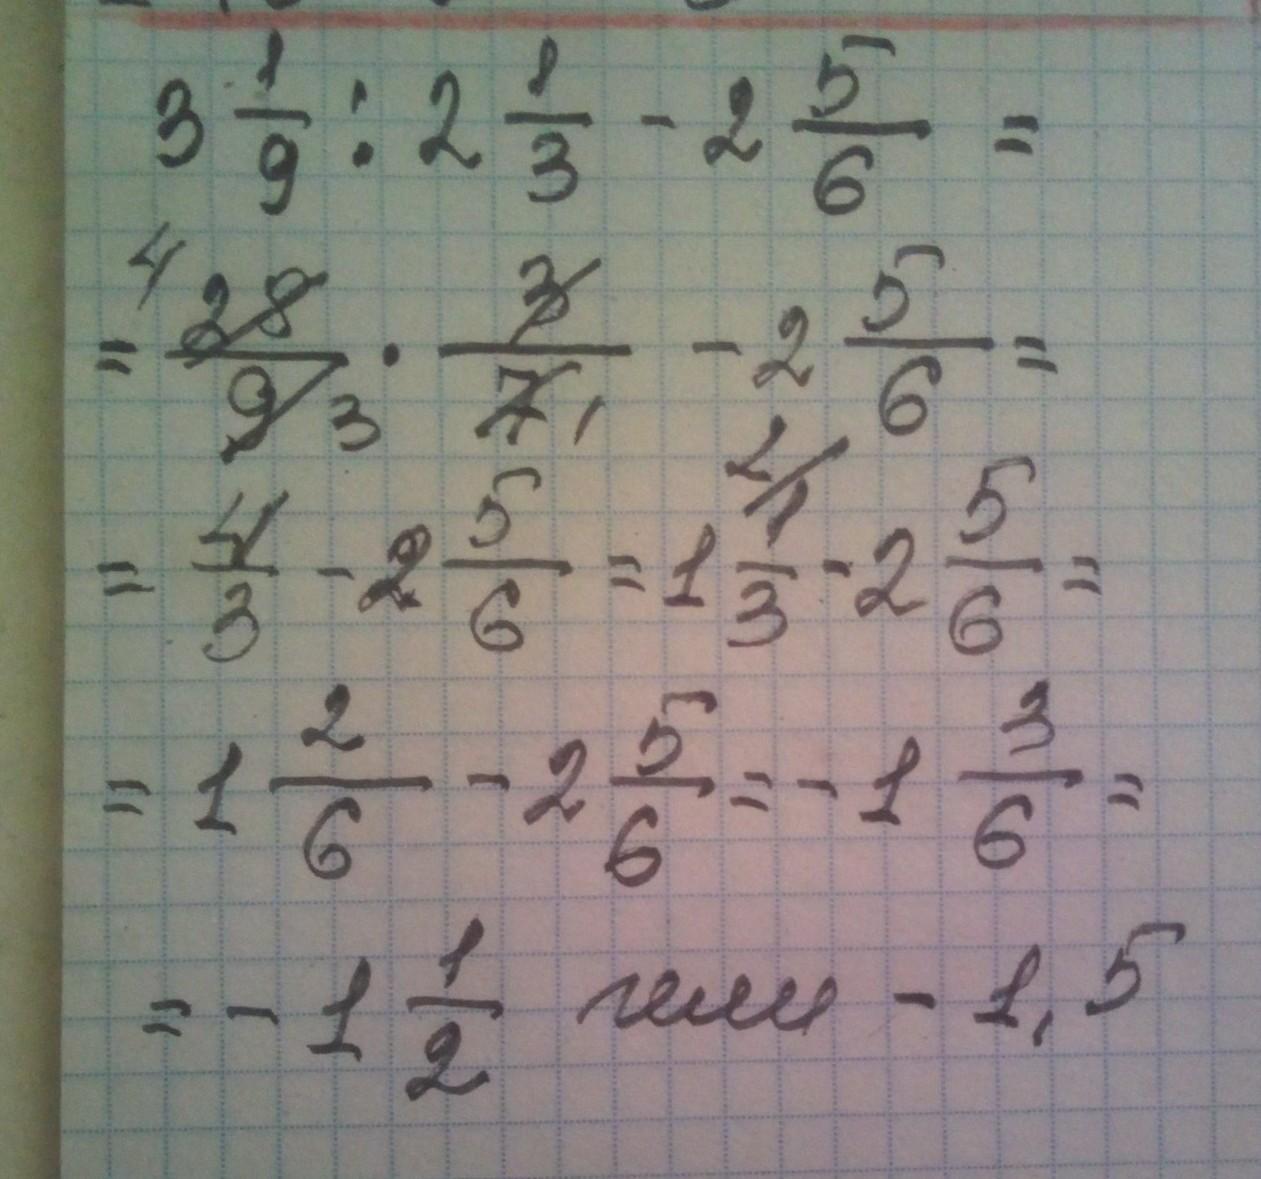 3 1/9 : 2 1/3 - 2 5/6 =
= 4 28/9 3 · 3/7 1 - 2 5/6 =
= 4/3 - 2 5/6 = 1 2/ 1/3 - 2 5/6 =
= 1 2/6 - 2 5/6 = - 1 3/6 =
= - 1 1/2 или - 1,5